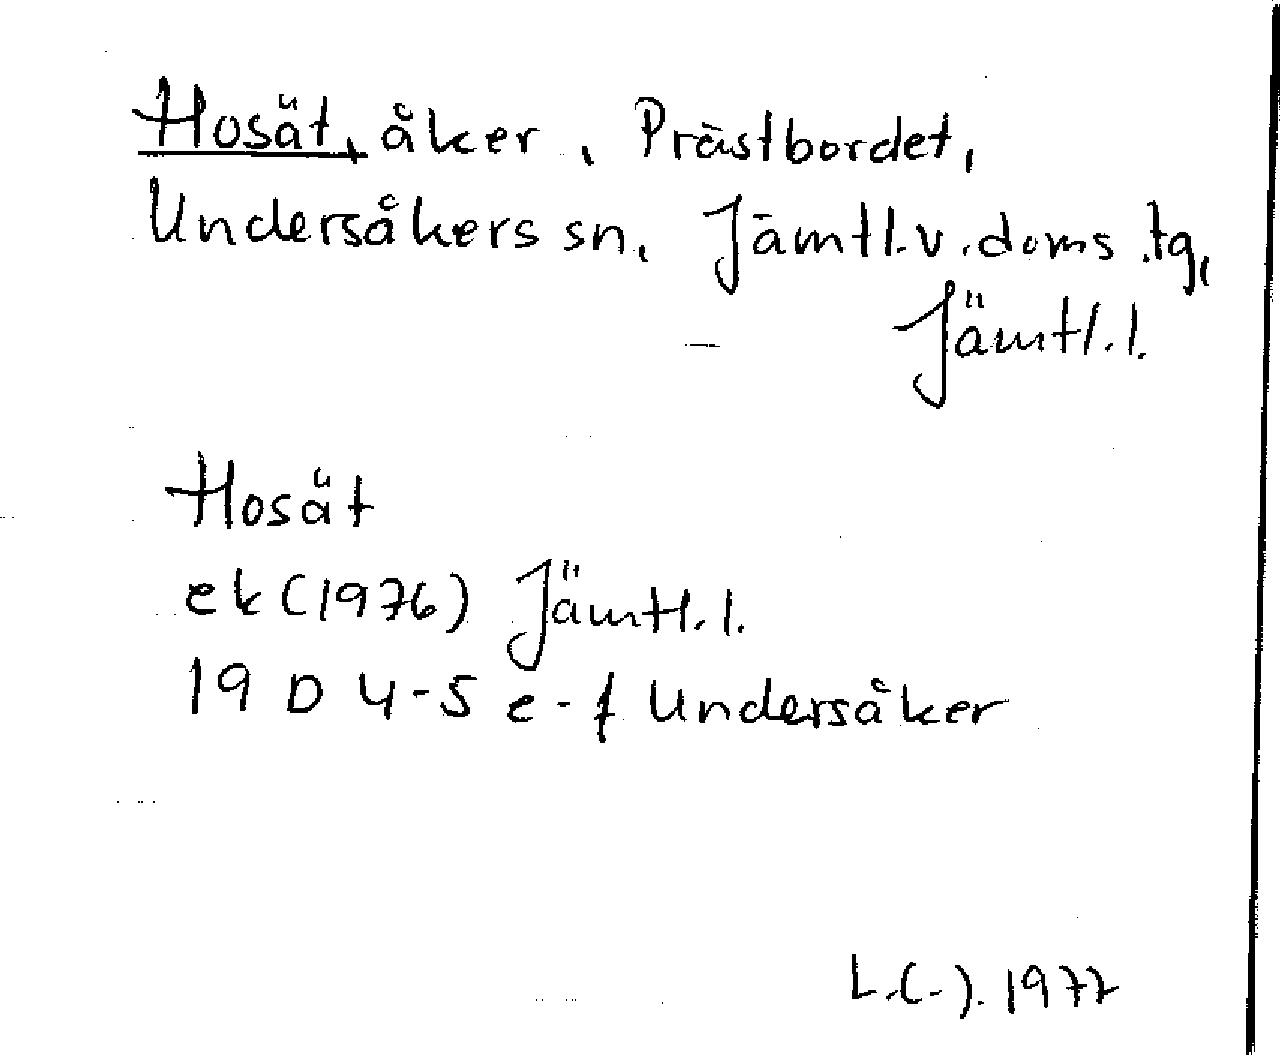 Hosät, åker, Prästbordet,
Undersåkers sn, Jämtl.v.doms.tg,
Jämtl.l.
Hosät
ek (1976) Jämtl.l.
19 D 4-5 e-f Undersåker
L.(-). 1977